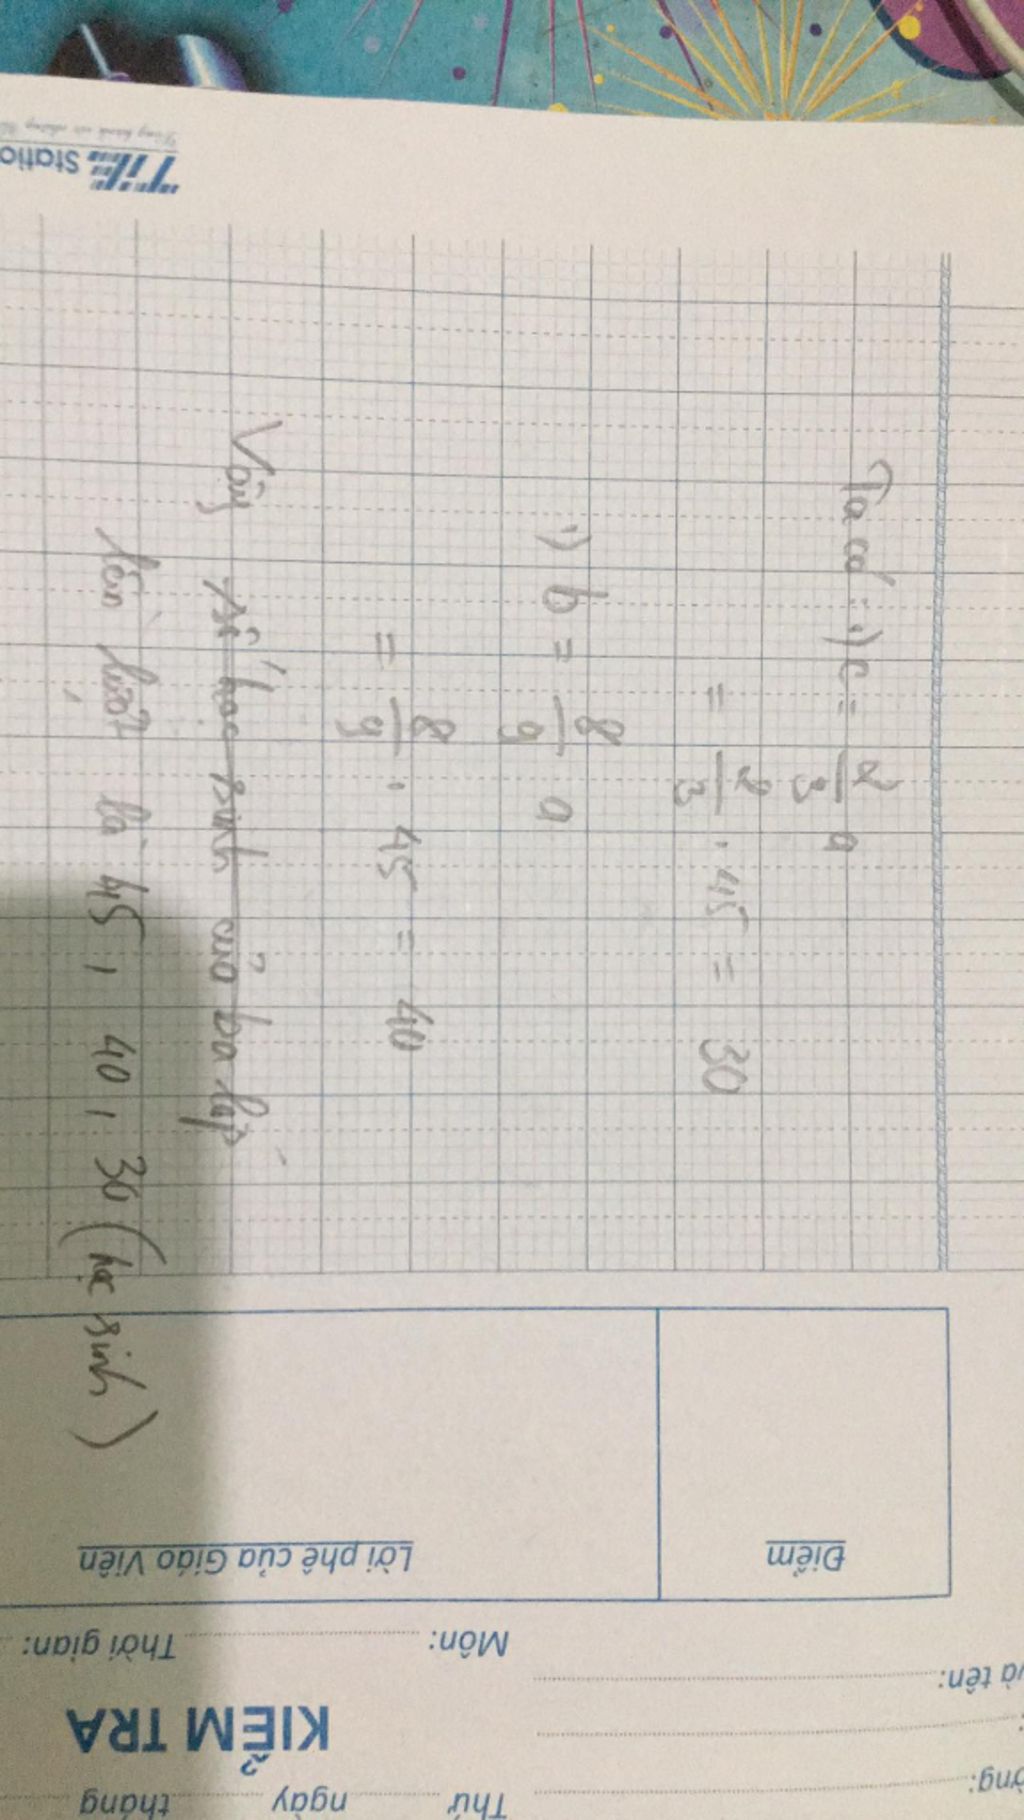 Ta có: .) c = 2/3 a
= 2/3 . 45 = 30
.) b = 8/9 a
= 8/9 . 45 = 40
Vậy số học sinh của ba lớp
lần lượt là 45, 40, 30 (học sinh)
Thứ ngày tháng
KIỂM TRA
Môn: Thời gian:
và tên:
Điểm
Lời phê của Giáo Viên
TiE Statio